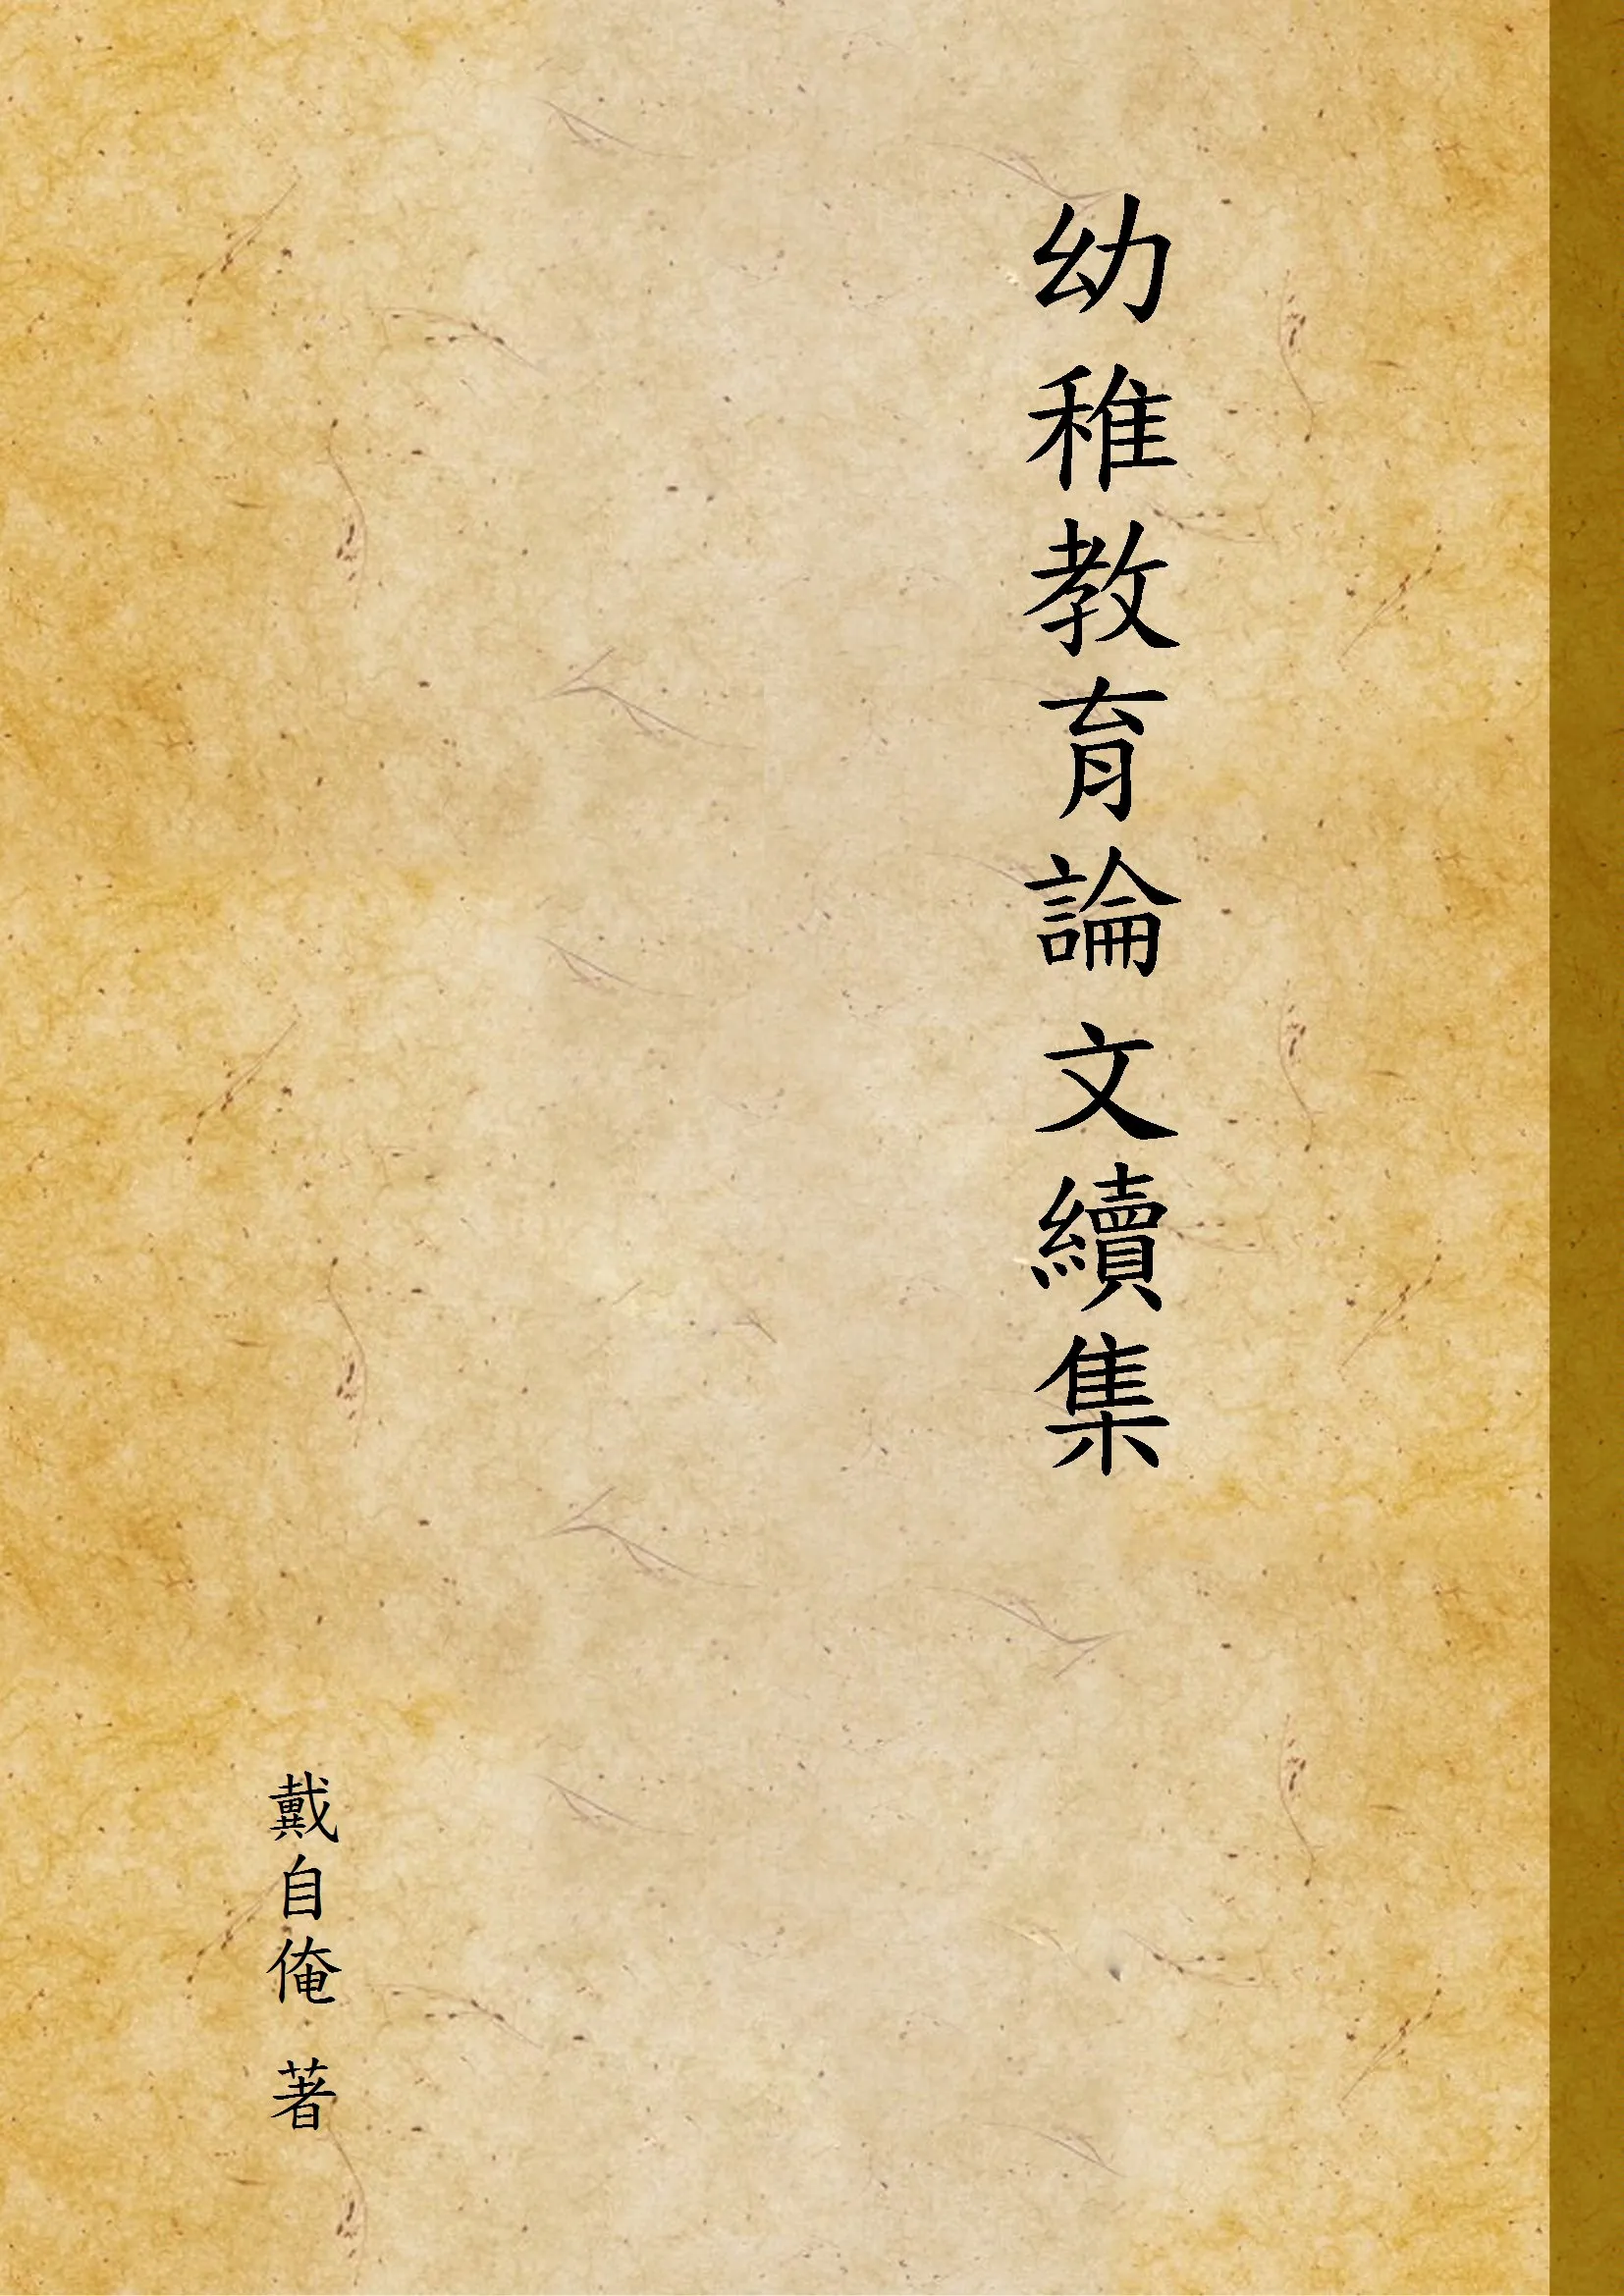 幼稚教育論文續集
戴自俺 著